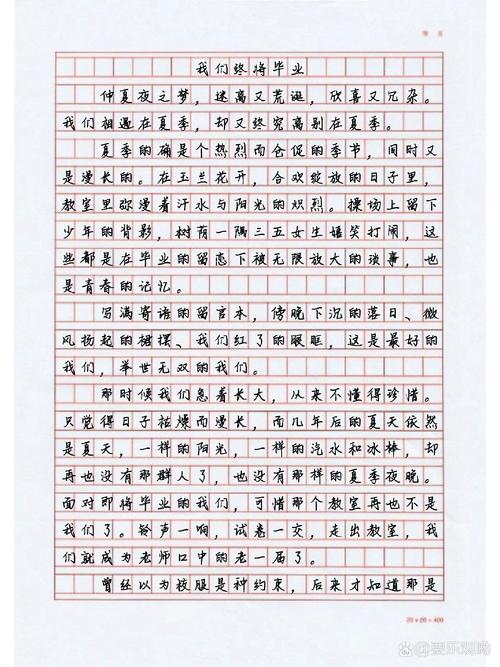 我们终将毕业
仲夏夜之梦，迷离又荒诞，欣喜又冗杂。
我们相遇在夏季，却又终究离别在夏季。
夏季的确是个热烈而仓促的季节，同时又
是漫长的。在玉兰花开，合欢绽放的日子里，
教室里弥漫着汗水与阳光的炽烈。操场上留下
少年的背影，树荫一隅三五女生嬉笑打闹，这
些都是在毕业的留恋下被无限放大的琐事，也
是青春的记忆。
写满寄语的留官本，傍晚下沉的落日、微
风扬起的裙摆、我们红了的眼眶，这是最好的
我们，举世无双的我们。
那时候我们急着长大，从来不懂得珍惜。
只觉得日子枯燥而漫长，而几年后的夏天依然
是夏天，一样的阳光，一样的汽水和冰棒，却
再也没有那群人了，也没有那样的夏季夜晚。
面对即将毕业的我们，可惜那个教室再也不是
我们了。铃声一响，试卷一交，走出教室，我
们就成为老师口中的老一届了。
曾经以为校服是种约束，后来才知道那是
20×20=400